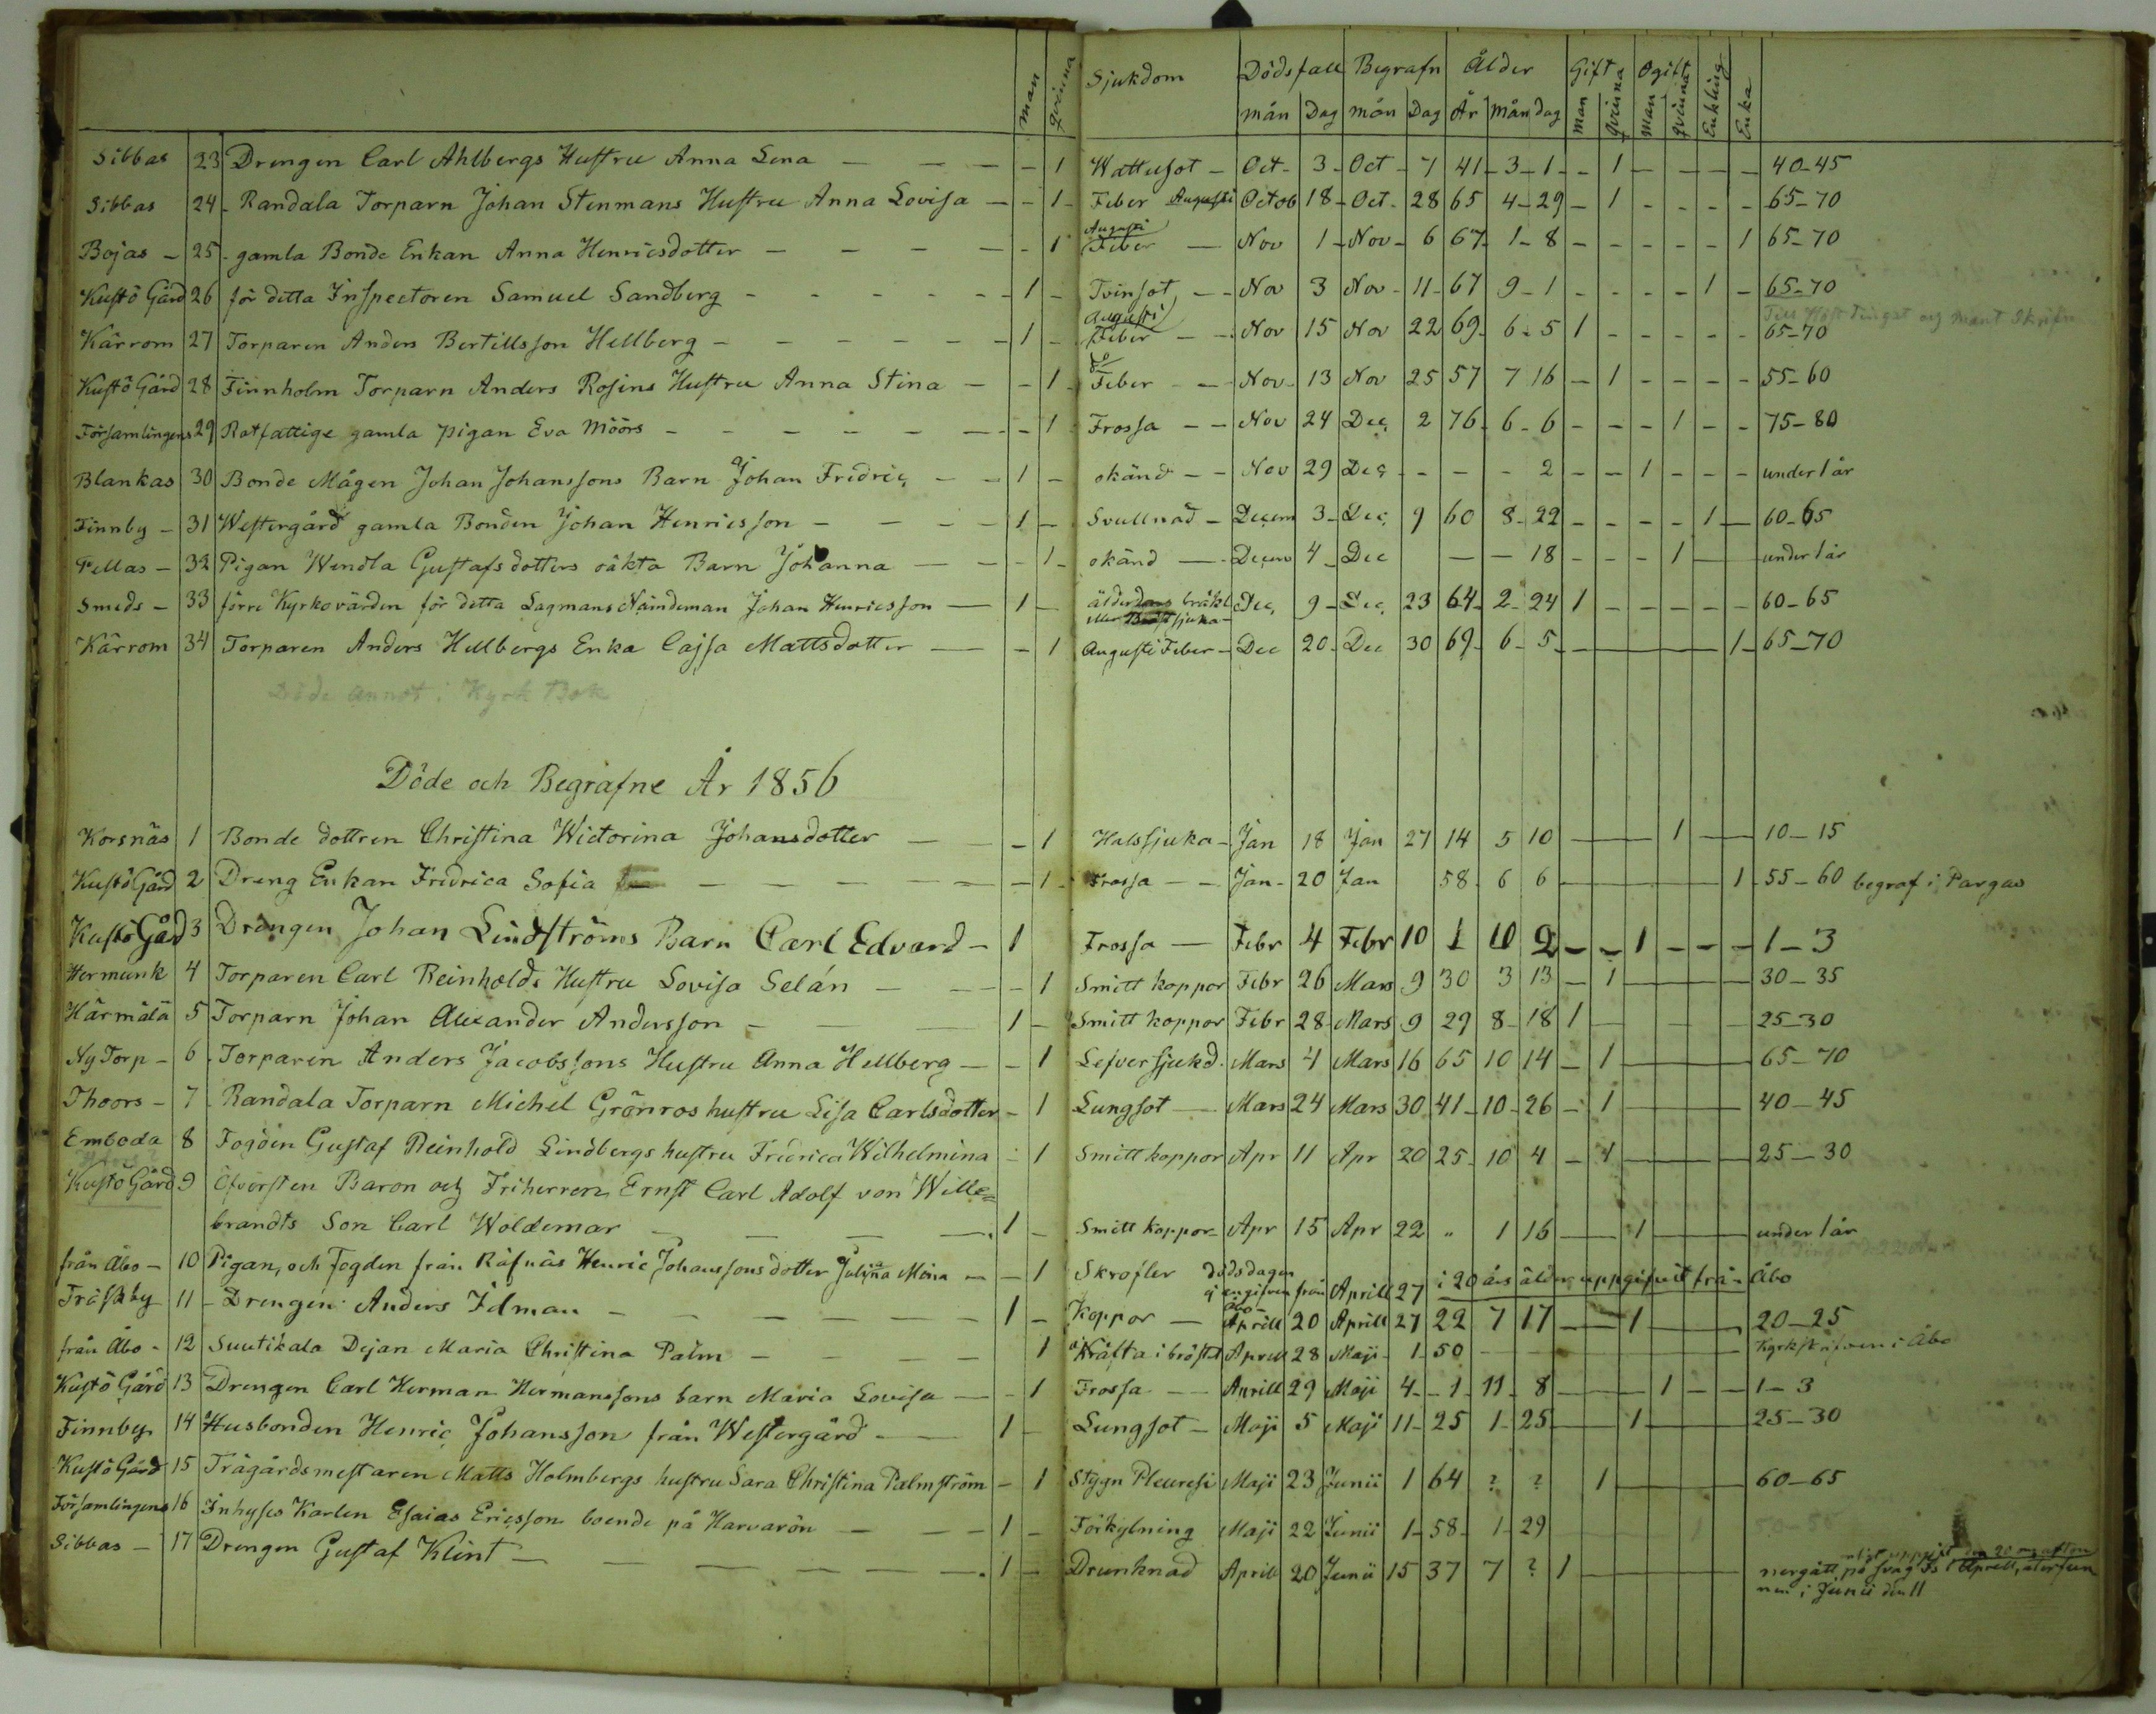 man qvinna Sjukdom Dödsfall Begrafn Ålder Gift Ogift Enkling Enka
mån Dag mån Dag År mån dag man qvinna man qvinna
Sibbas 23 Drengen Carl Ahlbergs Hustru Anna Lena — — — - 1 Wattusot - Oct - 3 - Oct - 7 41 - 3 - 1 - - 1 - - - - 40-45
Sibbas 24 - Randala Torparn Johan Stenmans Hustru Anna Lovisa — - 1 - Feber Augusti Octob 18 - Oct - 28 65 4 - 29 - 1 - - - - 65-70
Augusti
Bojas - 25 - gamla Bonde Enkan Anna Henricsdotter - - - - - 1 Feber — Nov 1 - Nov - 6 67 - 1 - 8 - - - - - 1 65-70
Kustö Gård 26 för detta Inspectoren Samuel Sandberg - - - - - 1 - Tvinsot — Nov 3 Nov - 11 - 67 9 - 1 - - - - 1 - 65-70
Augusti
Kärrom 27 Torparen Anders Bertillsson Hellberg - - - - - 1 - Feber — Nov 15 Nov 22 69 - 6 - 5 1 - - - - - 65-70
do
Kustö Gård 28 Finnholm Torparn Anders Rosins Hustru Anna Stina — - 1 - Feber — Nov - 13 Nov 25 57 7 16 - 1 - - - - 55-60
Församlingens 29 Rotfattige gamla pigan Eva Möörs - - - - - - 1 - Frossa - - Nov 24 Dec 2 76 - 6 - 6 - - - 1 - - 75-80
Blankas 30 Bonde Mågen Johan Johanssons Barn Johan Fredric — 1 - okänd - - Nov 29 Dec - - - - 2 - - 1 - - - under 1 år
Finnby - 31 Westergård gamla Bonden Johan Henricsson - - - - 1 - Svullnad - Decem 3 - Dec 9 60 8 - 22 - - - - 1 - 60-65
Tellas - 32 Pigan Wendla Gustafsdotters oäkta Barn Johanna — - 1 - okänd — Decem 4 - Dec — — 18 - - - 1 — under 1 år
Smeds - 33 förre Kyrkovärden för detta Lagmans Nämdeman Johan Henricsson — 1 - ålderdoms bräkl Dec 9 - Dec 23 64 - 2 - 24 1 - - - - - 60-65
eller Bröstsjuka -
Kärrom 34 Torparen Anders Hellbergs Enka Cajsa Mattsdotter — - 1 Augusti Feber - Dec 20 - Dec 30 69 - 6 - 5 - — 1 - 65-70
Döde annot i Kyrk Bok
Döde och Begrafne År 1856
Korsnäs 1 Bonde dottren Christina Wictorina Johansdotter — - 1 Halssjuka - Jan 18 Jan 27 14 5 10 — 1 — 10-15
Kustö Gård 2 Dreng Enkan Fredrica Sofia — - 1 - Frossa — Jan - 20 Jan 58 6 6 — 1 - 55-60 begraf i Pargas
Kustö Gård 3 Drengen Johan Lindströms Barn Carl Edvard - 1 Frossa — Febr 4 Febr 10 1 10 2 - - 1 - - - 1-3
Hermunk 4 Torparen Carl Reinholds Hustru Lovisa Selán — - 1 Smitt koppor Febr 26 Mars 9 30 3 13 - 1 — 30-35
Härmälä 5 Torparn Johan Alexander Andersson - 1 - Smitt koppor Febr 28 - Mars 9 29 8 - 18 1 — 25-30
Ny Torp - 6 Torparen Anders Jacobssons Hustru Anna Hellberg — - 1 Lefver sjukd. Mars 4 Mars 16 65 10 14 - 1 — 65-70
Thoors - 7 Randala Torparn Michel Grönros hustru Lisa Carlsdotter - 1 Lungsot — Mars 24 Mars 30 41 - 10 - 26 - 1 — 40-45
Emboda 8 Fogden Gustaf Reinhold Lindbergs hustru Fredrica Wilhelmina - 1 Smitt koppor Apr 11 Apr 20 25 - 10 4 - 1 — 25-30
Kustö Gård 9 Öfversten Baron och Friherren Ernst Carl Adolf von Wille=
brandts Son Carl Woldemar — 1 - Smitt koppor - Apr 15 Apr 22 " 1 16 — 1 — under 1 år
från Åbo - 10 Pigan, och Fogden från Räfnäs Henric Johanssons dotter Juliana Mina — - 1 Skrofler dödsdagen ej angifven från Åbo - Aprill 27 i 20 års ålder uppgifvit från Åbo
Träskby 11 - Drengen Anders Idman - 1 - Koppor — Aprill 20 Aprill 27 22 7 17 — 1 — 20-25
från Åbo - 12 Suutikala Dejan Maria Christina Palm - 1 Kräfta i bröstet Aprill 28 Maji - 1 - 50 — Kyrkskrifven i Åbo
Kustö Gård 13 Drengen Carl Herman Hermanssons barn Maria Lovisa — - 1 Frossa — Aprill 29 Maji 4 - - 1 - 11 - 8 — 1 - - 1-3
Finnby 14 Husbonden Henric Johansson från Westergård — 1 - Lungsot - Maji 5 Maji 11 - 25 1 - 25 — 1 — 25-30
Kustö Gård 15 Trägårdsmestaren Matts Holmbergs hustru Sara Christina Palmström - 1 Stygn Pleuresi Maji 23 Junii 1 64 ? ? 1 — 60-65
Församlingens 16 Inhyses Karlen Esaias Ericsson boende på Harvarön — 1 - Förkylning Maji 22 Junii 1 - 58 - 1 - 29
Sibbas - 17 Drengen Gustaf Klint - 1 - Drunknad Aprill 20 Junii 15 37 7 ? 1 — enligt uppgift den 20 aftonen
nergått på svag Is i Aprill, återfun
nen i Junii den 11